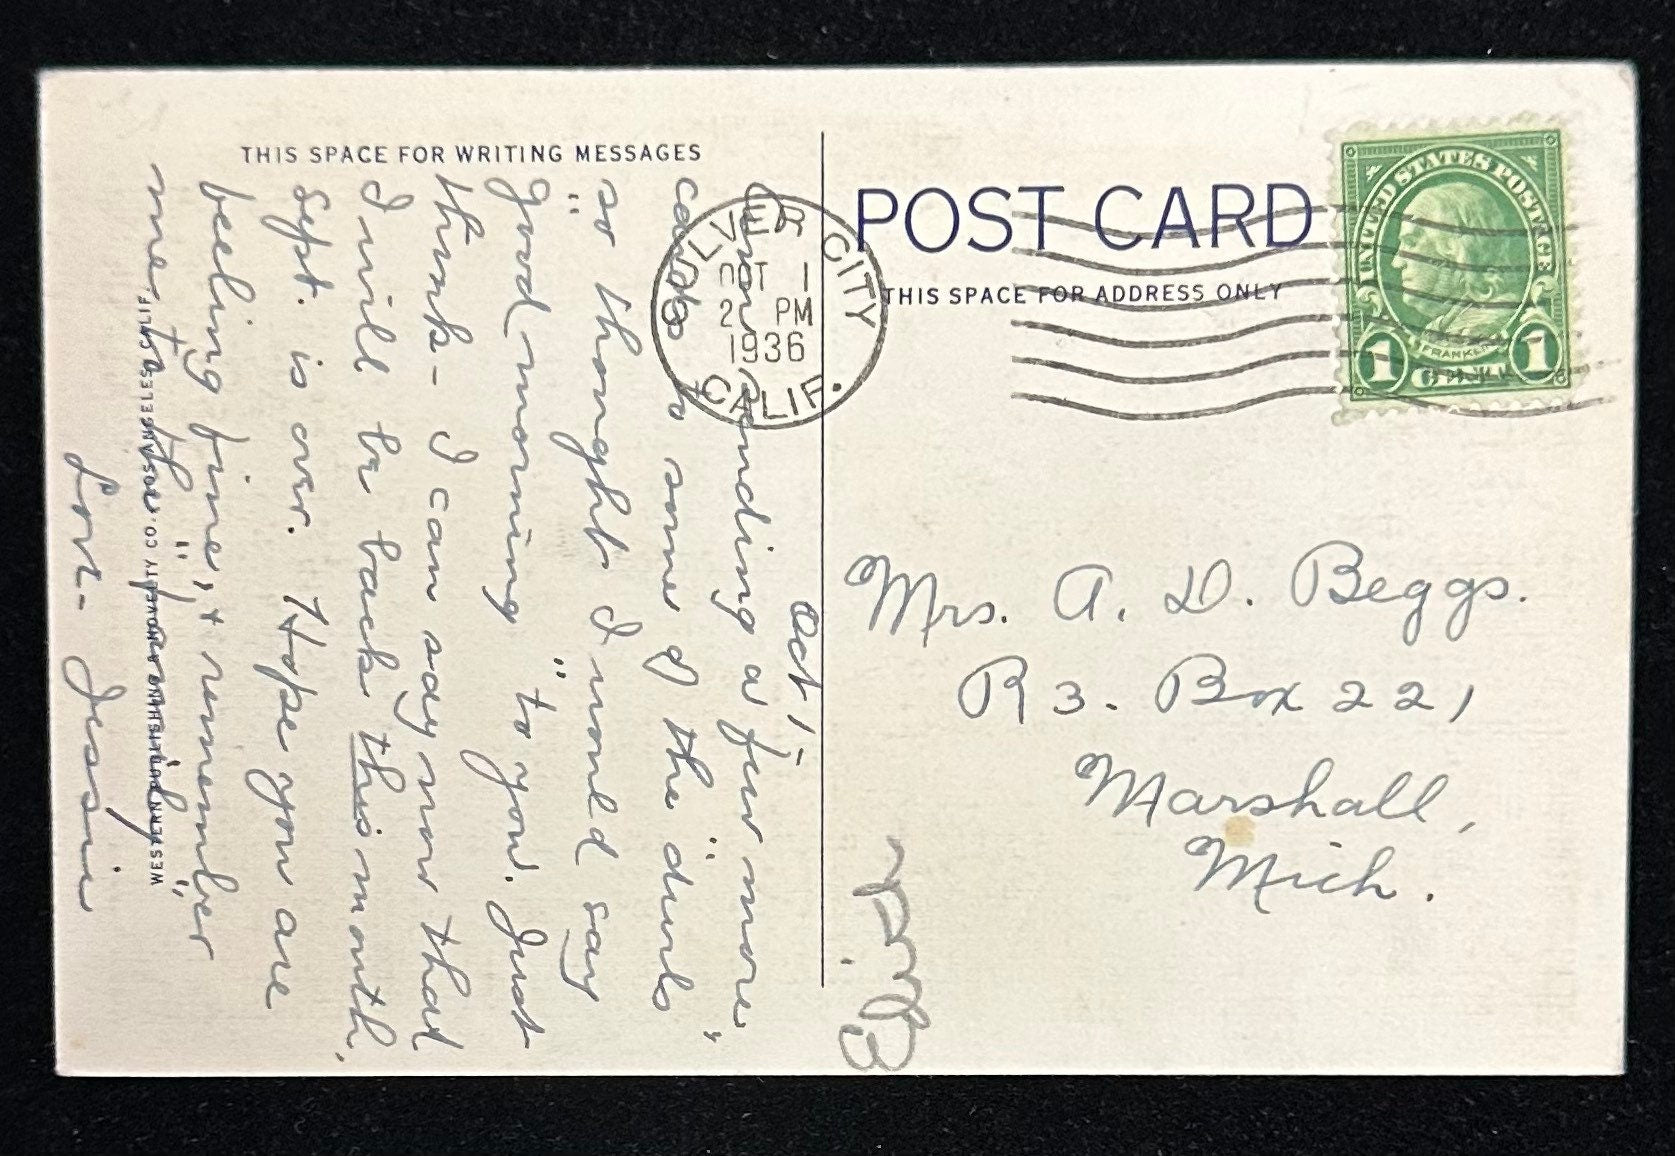 THIS SPACE FOR WRITING MESSAGES
Oct. 1,-
Am sending a few more
cards to some of the
so thought I would say
"good morning" to you. Just
think - I can say now that
I will be back this month,
Sept. is over. Hope you are
feeling fine, & remember
me to the
Love - Jessie
WESTERN PUBLISHING & NOVELTY CO., LOS ANGELES, CALIF.
CULVER CITY
OCT 1
2 PM
1936
CALIF.
POST CARD
THIS SPACE FOR ADDRESS ONLY
UNITED STATES POSTAGE
FRANKLIN
1 1
Mrs. A. D. Beggs.
R 3. Box 221
Marshall,
Mich.